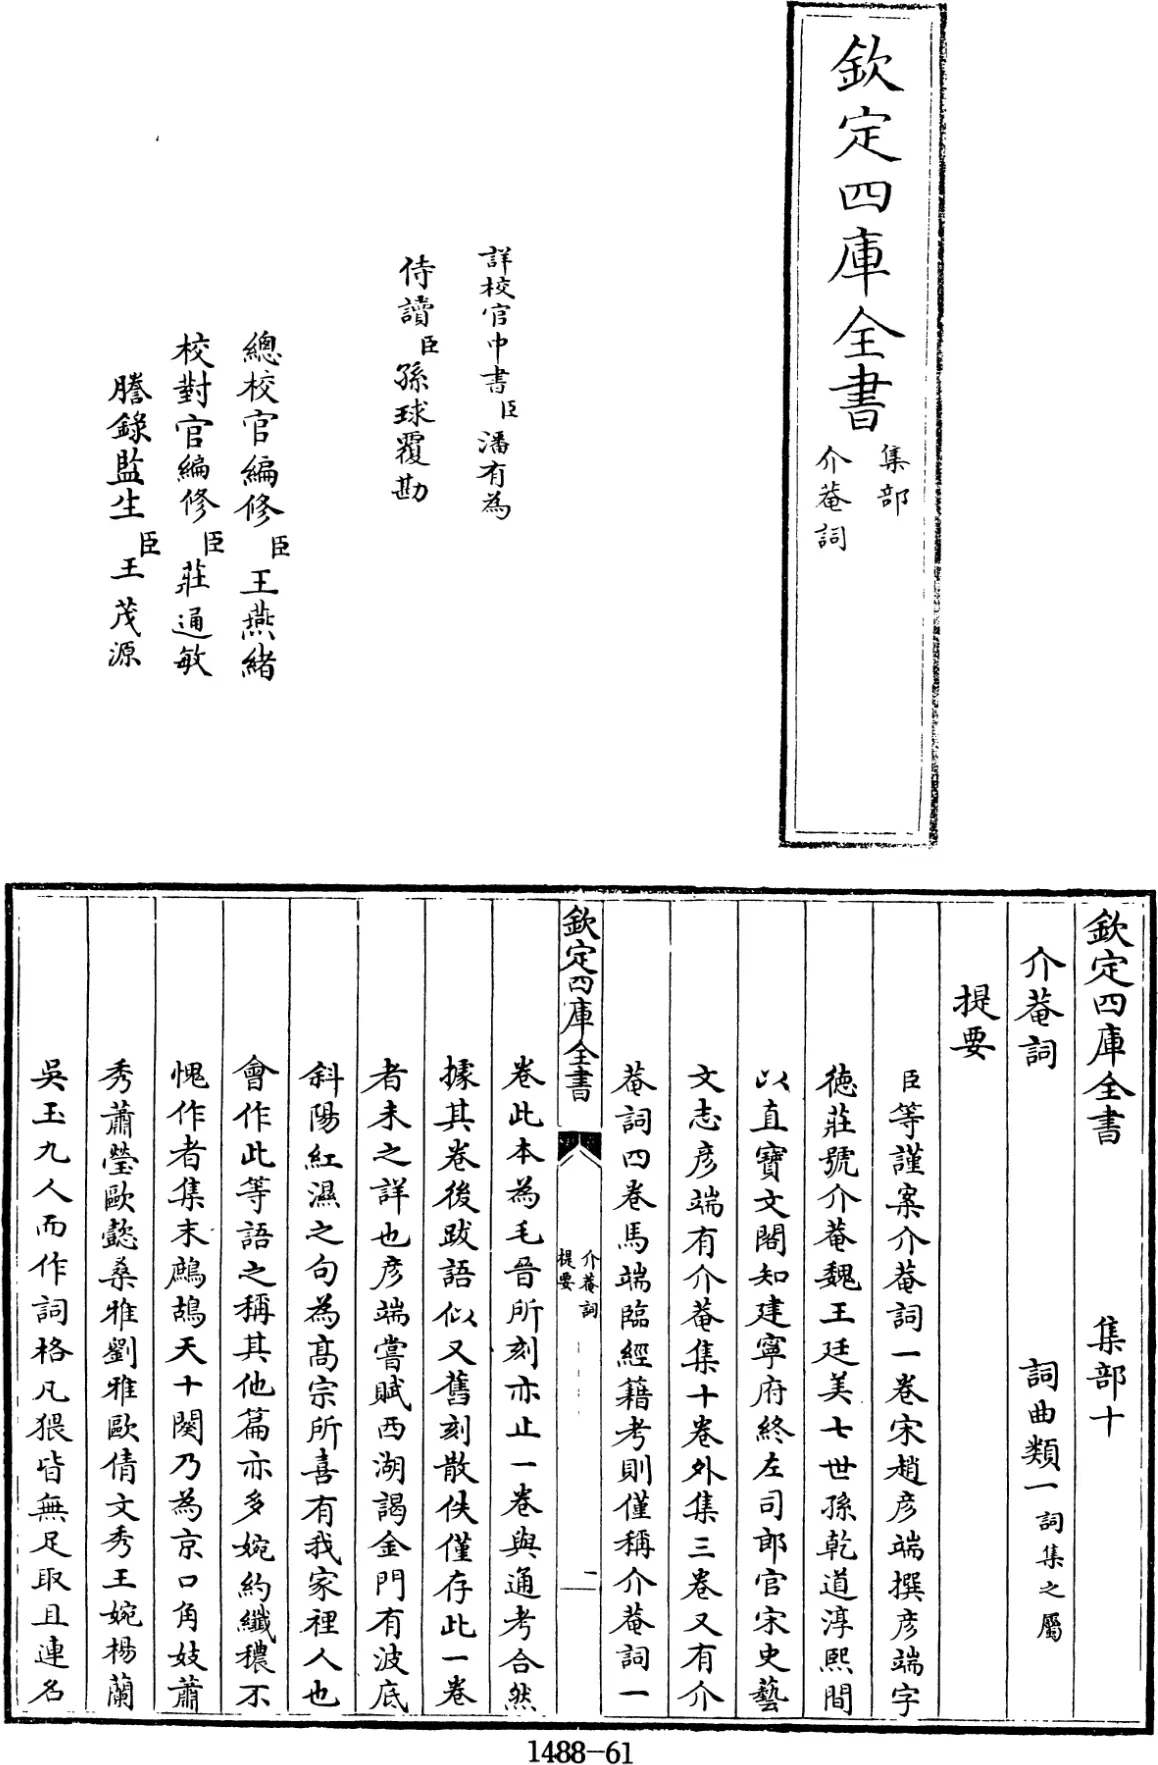 欽定四庫全書
集部
介菴詞
詳校官中書臣潘有為
侍讀臣孫球覆勘
總校官編修臣王燕緒
校對官編修臣莊通敏
謄錄監生臣王茂源
欽定四庫全書 集部十
介菴詞 詞曲類一詞集之屬
提要
臣等謹案介菴詞一卷宋趙彦端撰彦端字
徳莊號介菴魏王廷美七世孫乾道淳熙間
以直寶文閣知建寧府終左司郎官宋史藝
文志彦端有介菴集十卷外集三卷又有介
菴詞四卷馬端臨經籍考則僅稱介菴詞一
欽定四庫全書
介菴詞
提要
二
卷此本為毛晉所刻亦止一卷與通考合然
據其卷後跋語似又舊刻散佚僅存此一卷
者未之詳也彦端嘗賦西湖謁金門有波底
斜陽紅濕之句為髙宗所喜有我家裡人也
會作此等語之稱其他篇亦多婉約纎穠不
愧作者集末鷓鴣天十闋乃為京口角妓蕭
秀蕭瑩歐懿桑雅劉雅歐倩文秀王婉楊蘭
吳玉九人而作詞格凡猥皆無足取且連名
1488-61